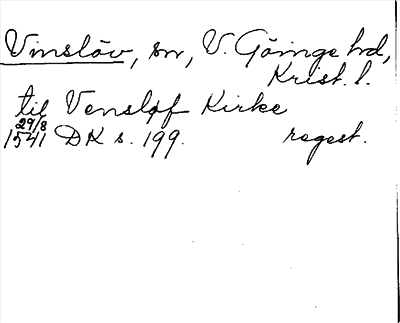 Vinslöv, sn, V. Göinge hd,
Krist. l.
til Vensløf Kirke
29/8
1541 DK s. 199. regest.